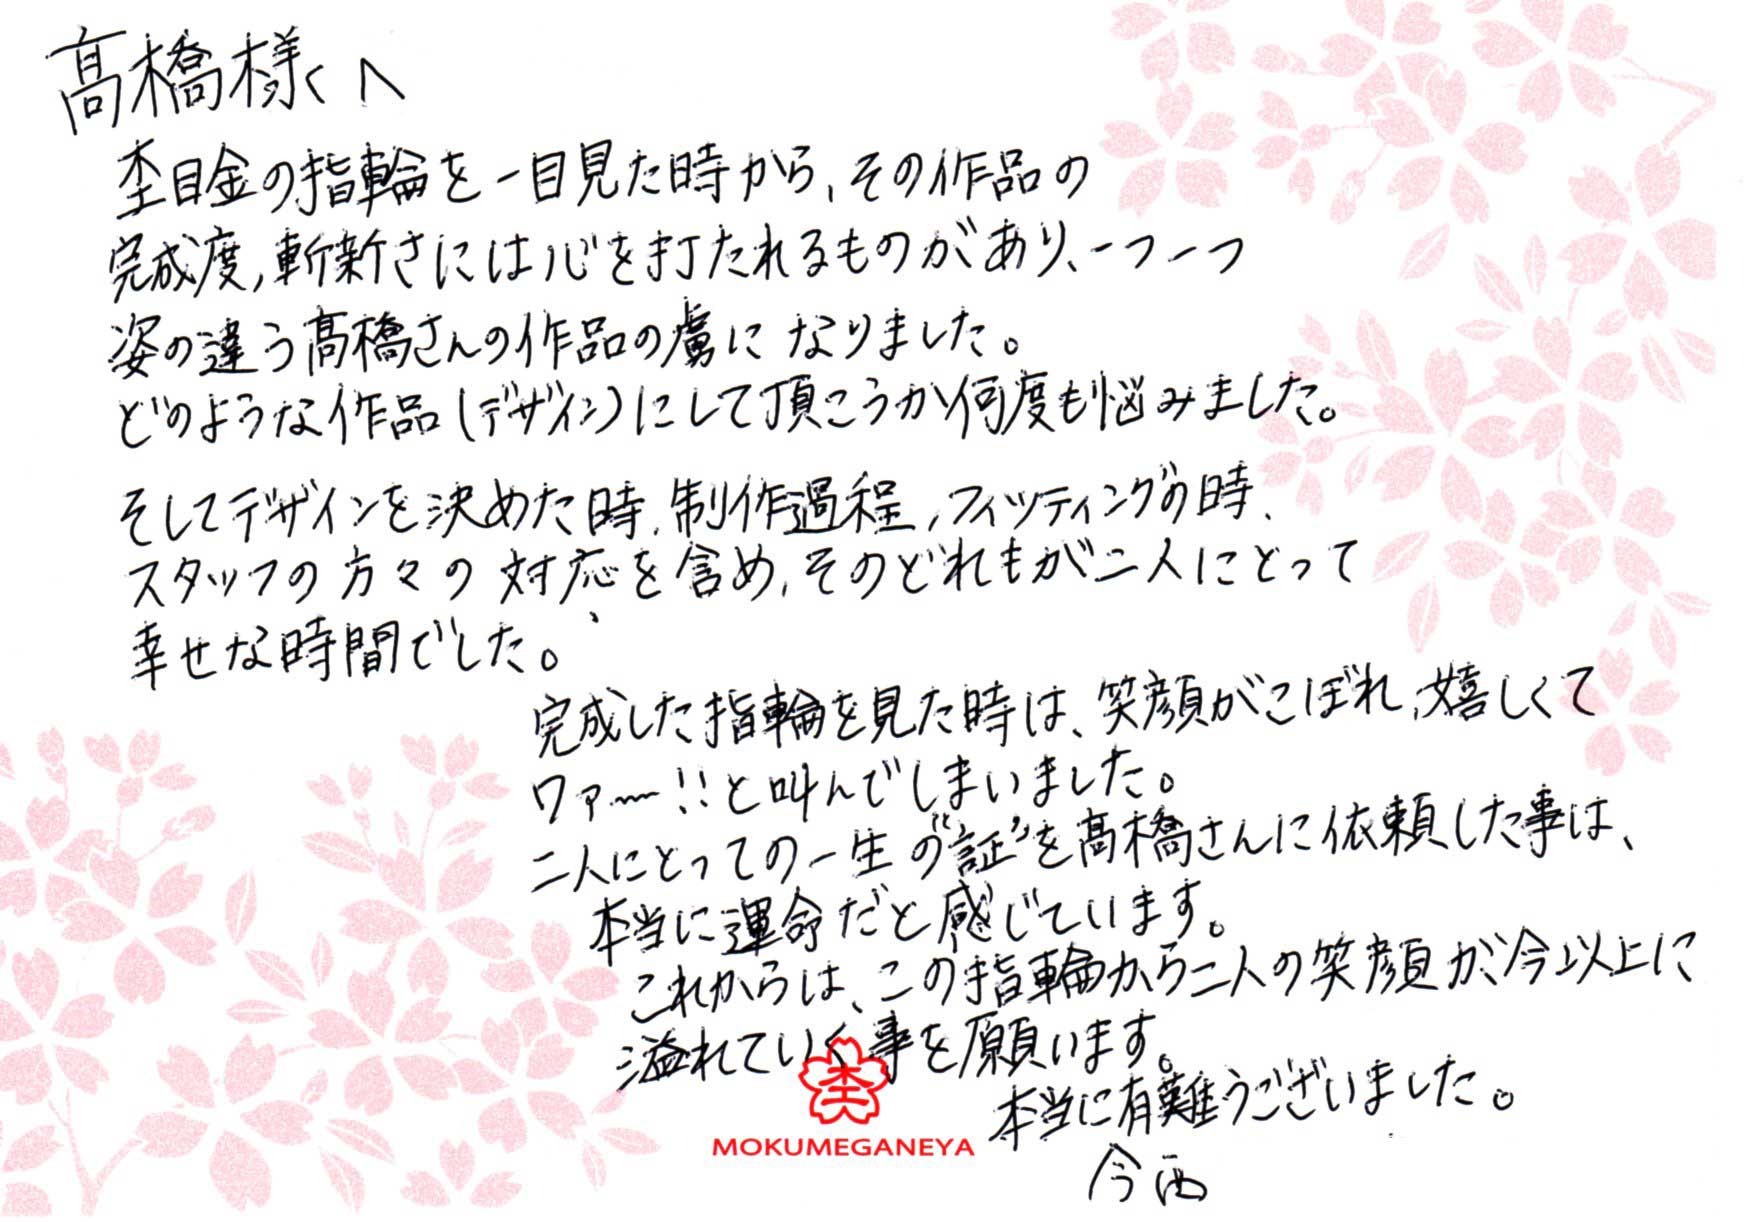 髙橋様へ
杢目金の指輪を一目見た時から、その作品の
完成度,斬新さには心を打たれるものがあり、一つ一つ
姿の違う髙橋さんの作品の虜になりました。
どのような作品(デザイン)にして頂こうか何度も悩みました。
そしてデザインを決めた時、制作過程,フィッティングの時、
スタッフの方々の対応を含め,そのどれもが二人にとって
幸せな時間でした。
完成した指輪を見た時は、笑顔がこぼれ,嬉しくて
ワァ〜!!と叫んでしまいました。
二人にとっての一生の“証”を髙橋さんに依頼した事は、
本当に運命だと感じています。
これからは、この指輪から二人の笑顔が、今以上に
溢れていく事を願います。
本当に有難うございました。
今西
杢
MOKUMEGANEYA